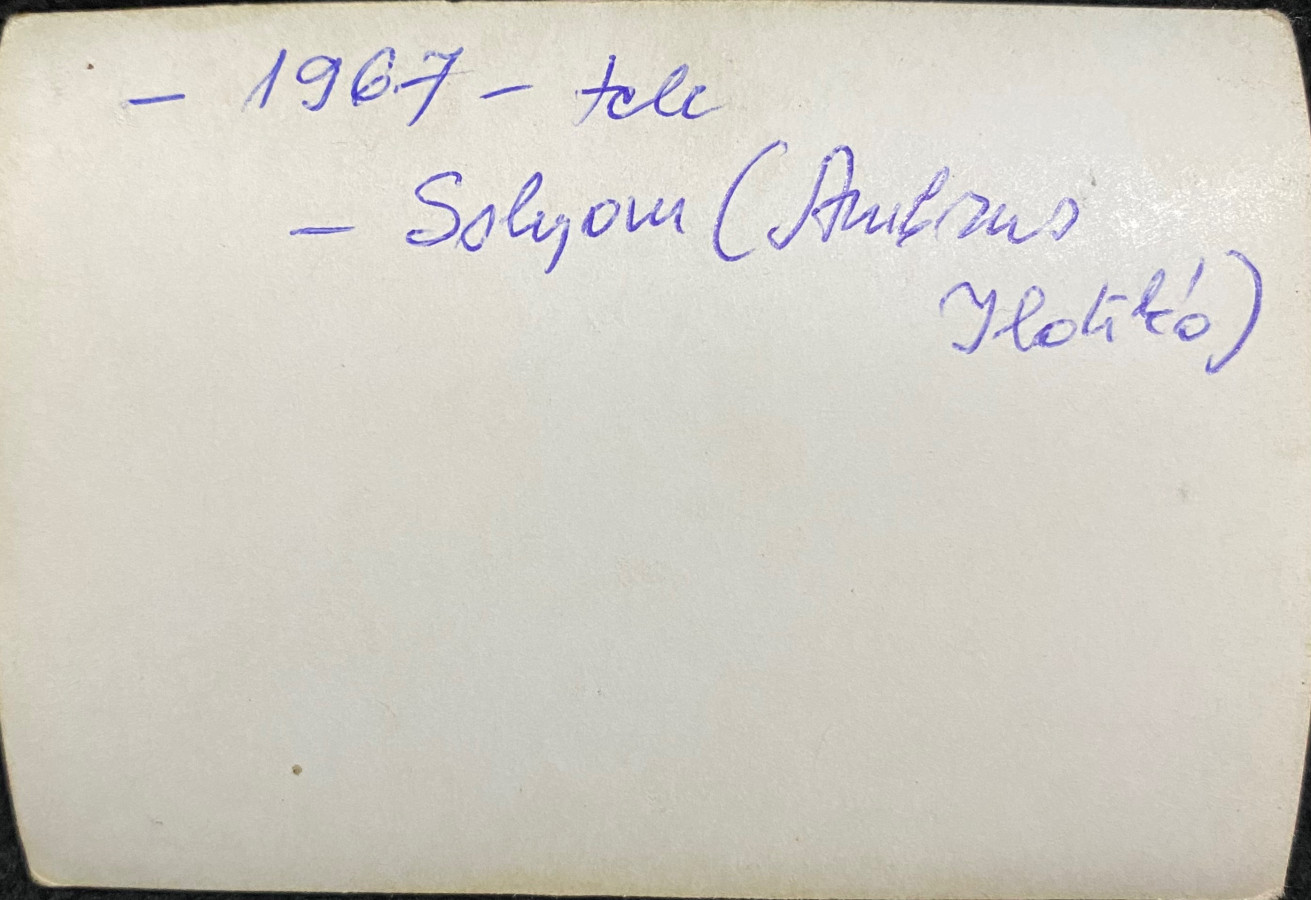 - 1967 - tele
- Solyom (Ambrus
Ildikó)